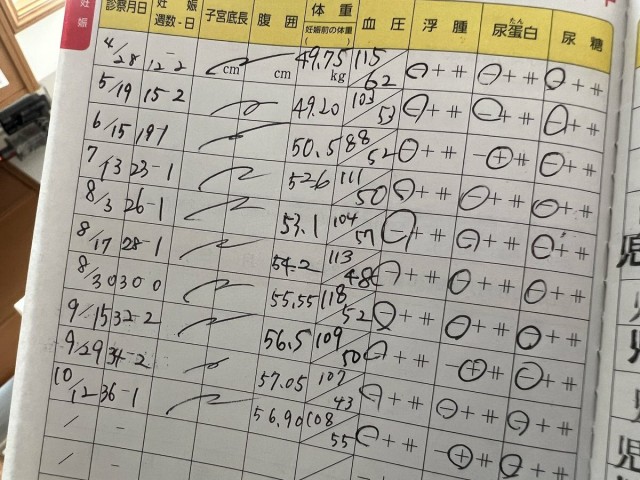 妊娠
診察月日 妊娠週数・日 子宮底長 腹囲 体重 妊娠前の体重 血圧 浮腫 尿蛋白 たん 尿糖
4/28 12-2 cm cm 49.75 kg 115/62 − + ⧺ − + ⧺ − + ⧺
5/19 15 2 49.20 103/53 − + ⧺ − + ⧺ − + ⧺
6/15 19 1 50.5 88/52 − + ⧺ − + ⧺ − + ⧺
7/13 23-1 52.6 111/50 − + ⧺ − + ⧺ − + ⧺
8/3 26-1 53.1 104/57 − + ⧺ − + ⧺ − + ⧺
8/17 28-1 54.2 113/48 − + ⧺ − + ⧺ − + ⧺
8/30 30 0 55.55 118/52 − + ⧺ − + ⧺ − + ⧺
9/15 32-2 56.5 109/50 − + ⧺ − + ⧺ − + ⧺
9/29 34-2 57.05 107/43 − + ⧺ − + ⧺ − + ⧺
10/12 36-1 56.90 108/55 − + ⧺ − + ⧺ − + ⧺
/ -
/ -